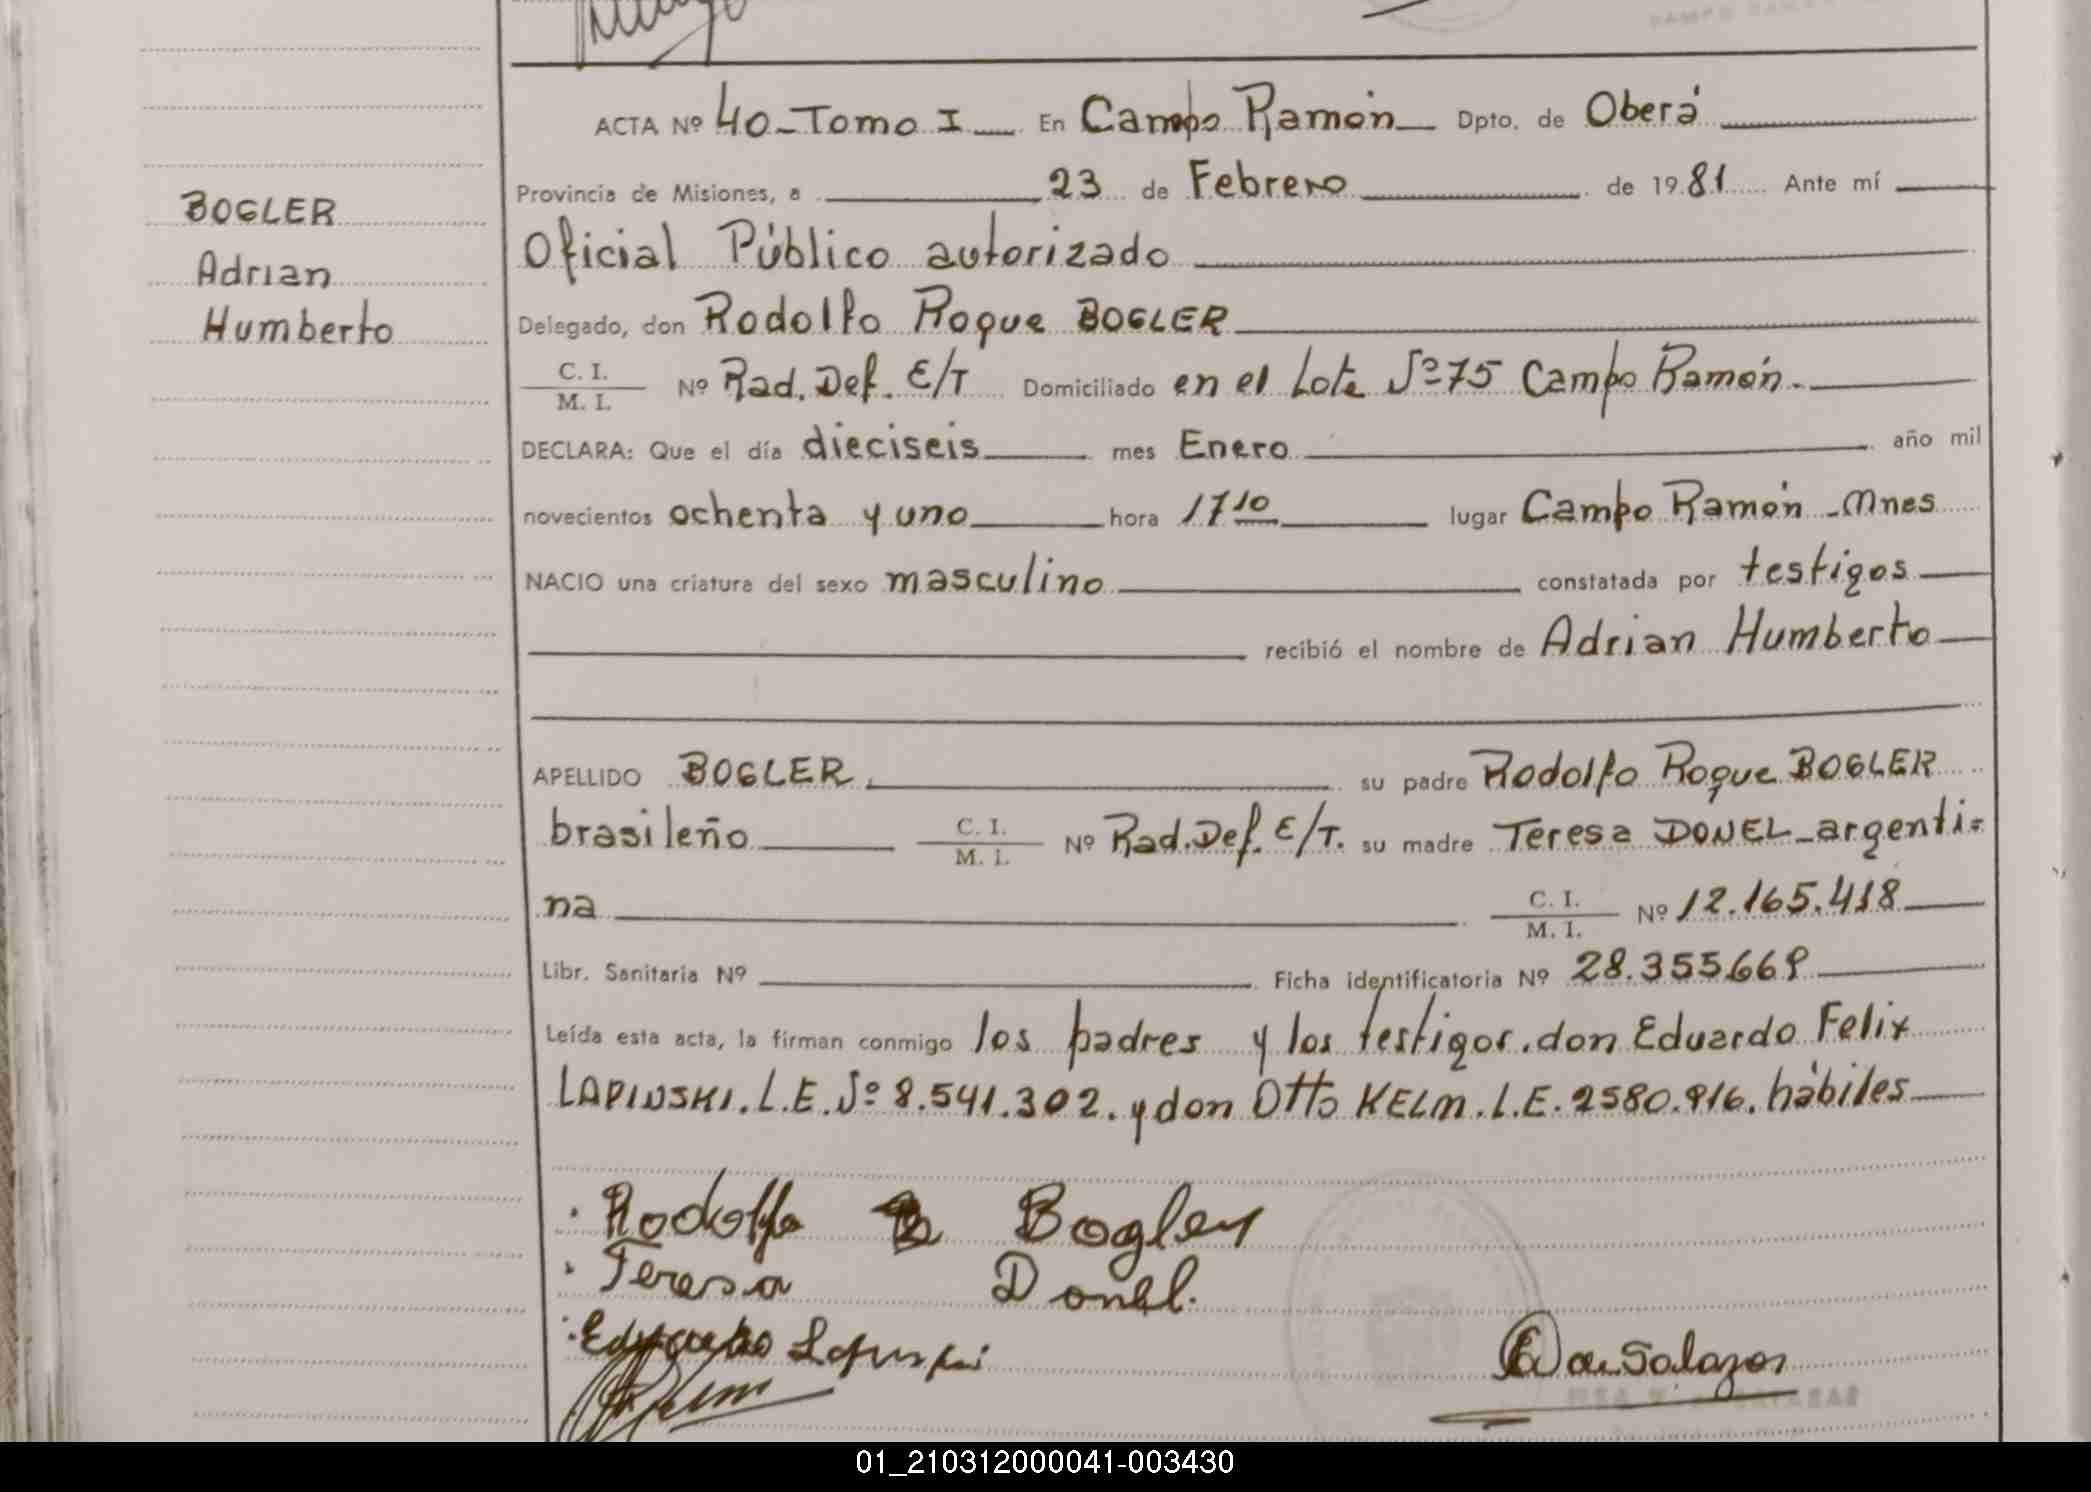 ACTA Nº 40 - Tomo I En Campo Ramón Dpto. de Oberá
Provincia de Misiones, a 23 de Febrero de 1981 Ante mí
Oficial Público autorizado
Delegado, don Rodolfo Roque BOGLER
C. I.
M. I.
Nº Rad. Def. E/T Domiciliado en el Lote Nº 75 Campo Ramón.
DECLARA: Que el día dieciseis mes Enero año mil
novecientos ochenta y uno hora 17 10 lugar Campo Ramón - Mnes
NACIO una criatura del sexo masculino constatada por testigos
recibió el nombre de Adrian Humberto
APELLIDO BOGLER su padre Rodolfo Roque BOGLER
brasileño C. I. M. I. Nº Rad. Def. E/T. su madre Teresa DONEL - argenti=
na C. I. M. I. Nº 12.165.418
Libr. Sanitaria Nº Ficha identificatoria Nº 28.355.669
Leída esta acta, la firman conmigo los padres y los testigos. don Eduardo Felix
LAPINSKI. L.E. Nº 8.541.302. y don Otto KELM. L.E. 2580.916. hábiles
Rodolfo Bogler
Teresa Donel.
BOGLER
Adrian
Humberto
01_210312000041-003430